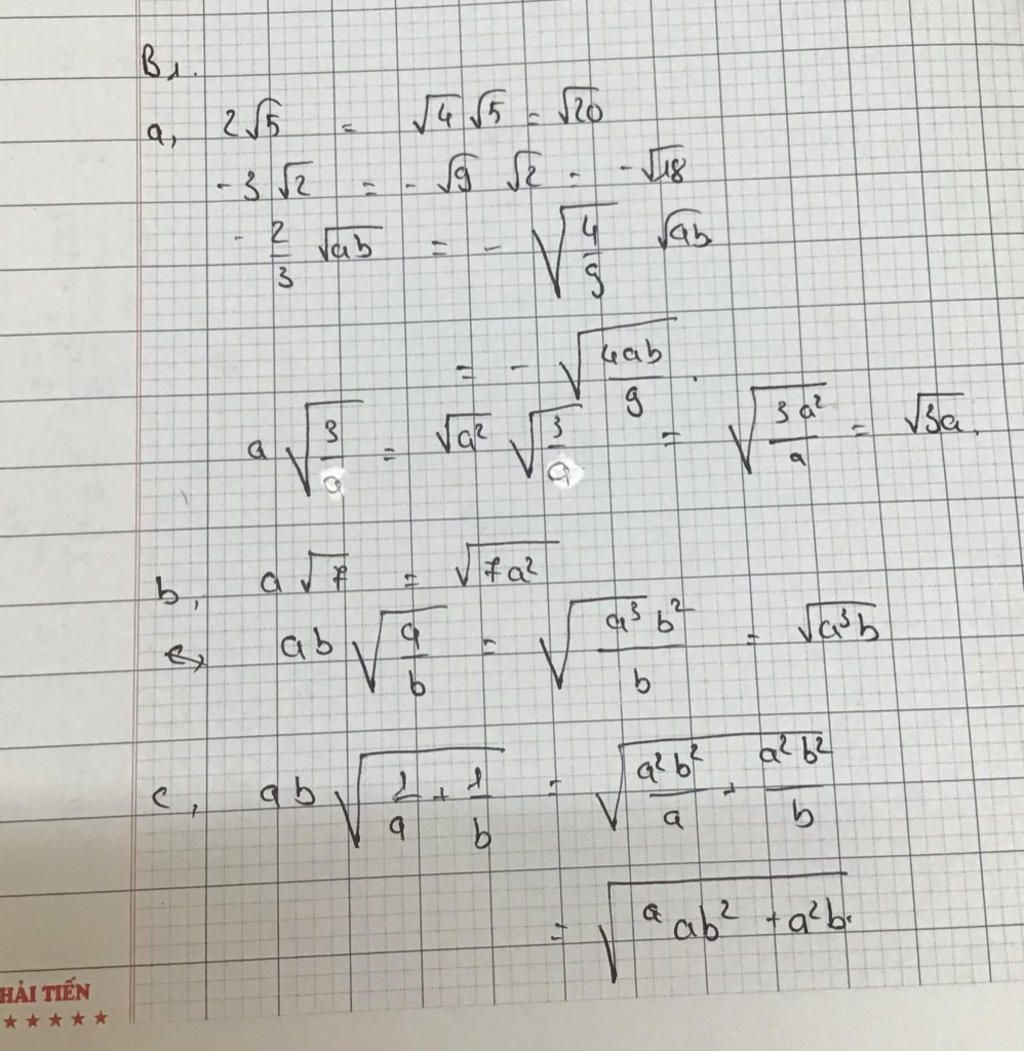 B1.
a, 2√5 = √4 √5 = √20
-3 √2 = - √9 √2 = - √18
- 2/3 √ab = - √(4/9) √ab
= - √(4ab/9) .
a √(3/a) = √a² √(3/a) = √(3a²/a) = √3a.
b, a √7 = √7a²
ab √(a/b) = √(a³b²/b) = √a³b
c, ab √(1/a + 1/b) = √(a²b²/a + a²b²/b)
= √(ab² + a²b).
HẢI TIẾN
★★★★★